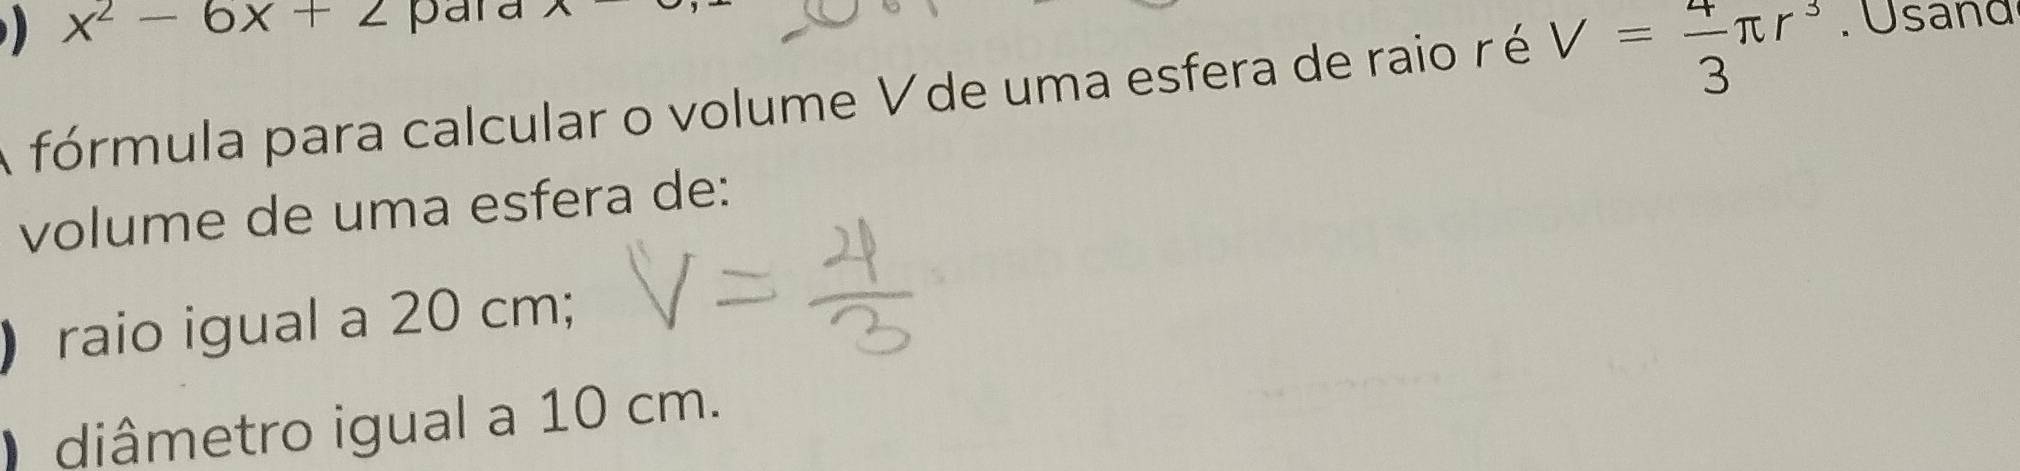 x² − 6x + 2 para x
A fórmula para calcular o volume V de uma esfera de raio r é V = 4/3 πr³. Usand
volume de uma esfera de:
) raio igual a 20 cm;
V = 4/3
) diâmetro igual a 10 cm.